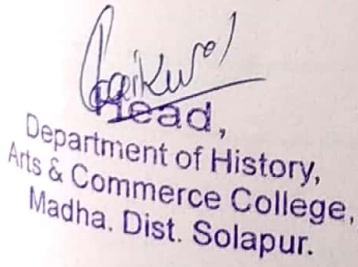 Head,
Department of History,
Arts & Commerce College,
Madha. Dist. Solapur.